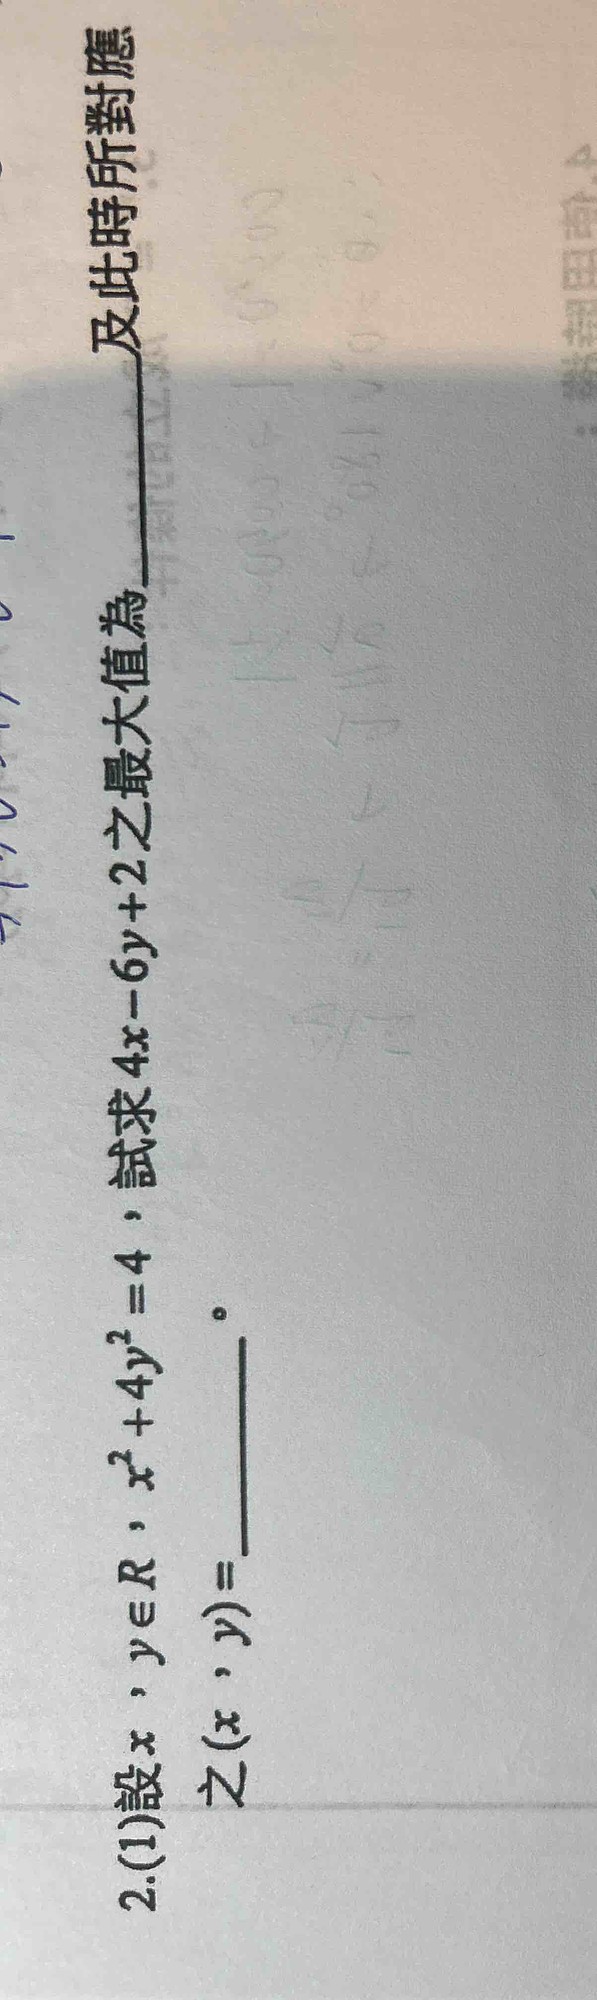 2.(1)設x,y∈R,x²+4y²=4,試求4x-6y+2之最大值為______及此時所對應
之(x,y)=______。